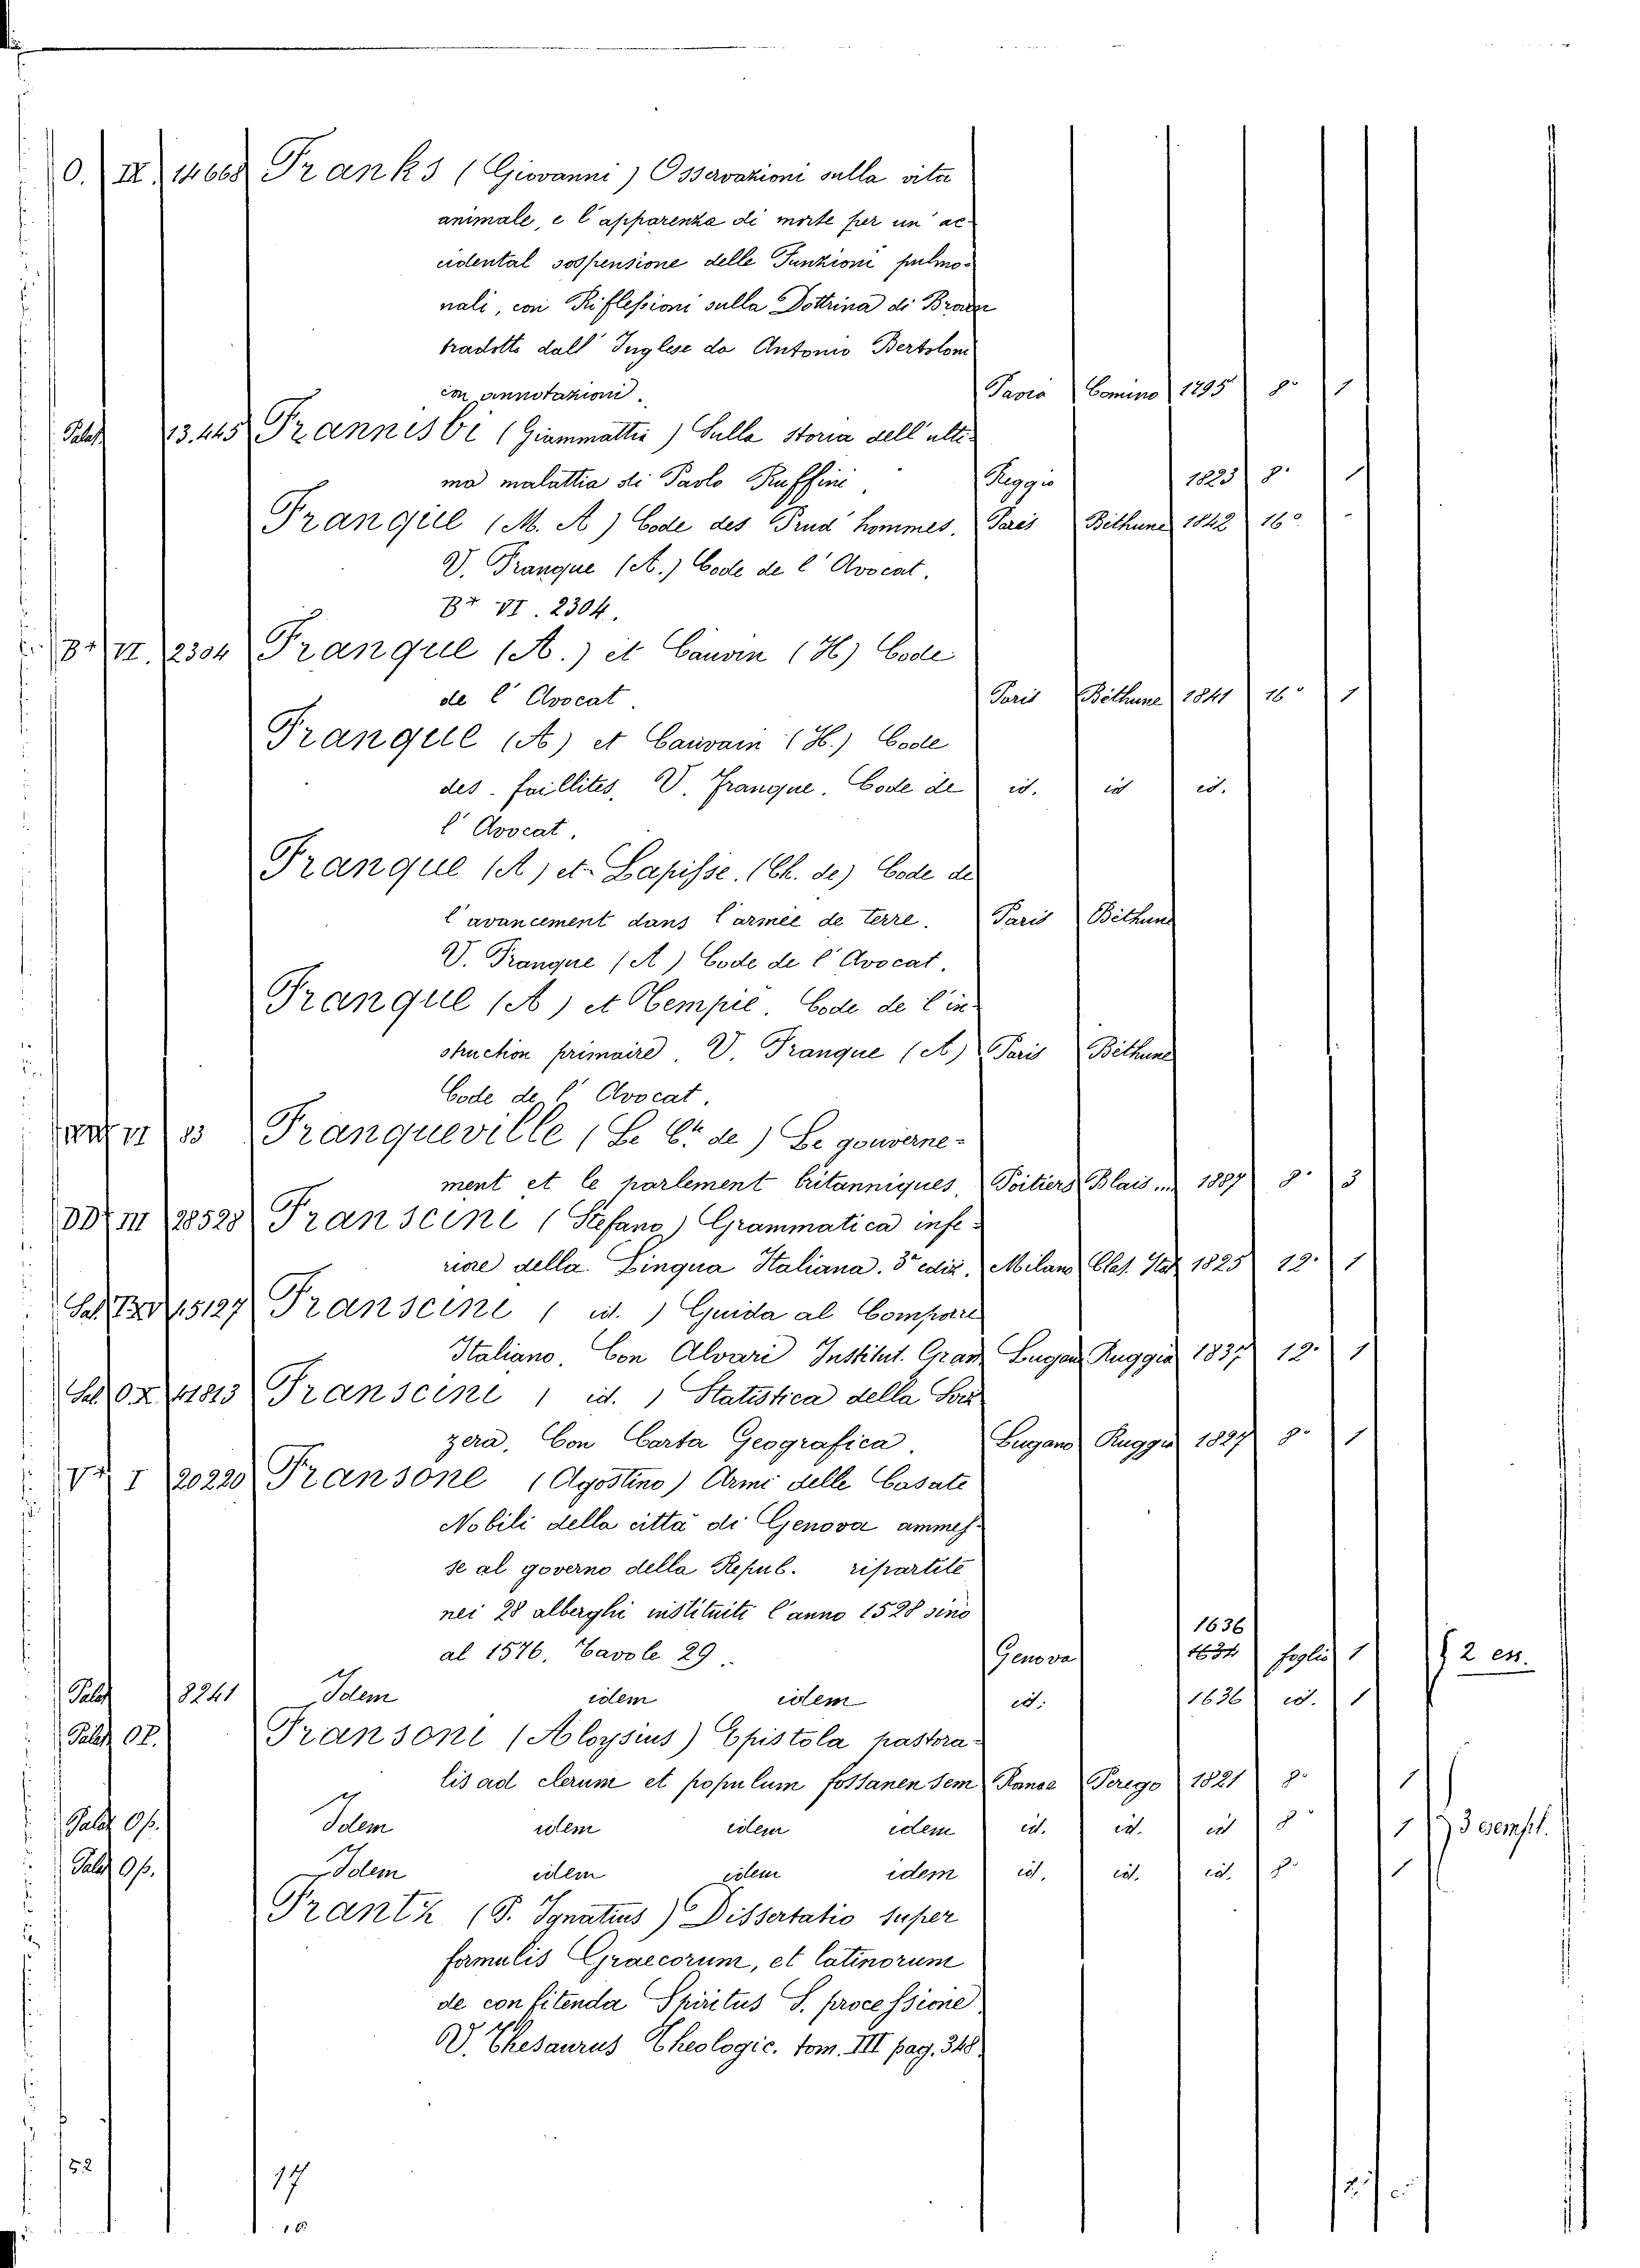 O. II. 14668 Franks (Giovanni) Osservazioni sulla vita
animale, e l'apparenza di morte per un' ac-
cidental sospensione delle Funzioni pulmo-
nali, con Riflessioni sulla Dottrina di Brown
tradotto dall' Inglese da Antonio Bertoloni
con annotazioni. Pavia Comino 1795 8° 1
Palat. 13.445 Frannisbi (Giammattia) Sulla storia dell' ulti-
ma malattia di Paolo Ruffini. Reggio 1823 8° 1
Franque (M. A) Code des Prud' hommes. Paris Béthune 1842 16° -
V. Franque (A.) Code de l' Avocat.
Br VI. 2304.
Br VI. 2304 Franque (A.) et Cauvin (H) Code
de l' Avocat. Paris Béthune 1841 16° 1
Franque (A) et Cauvain (H.) Code
des faillites, V. Franque. Code de id. id id.
l' Avocat.
Franque (A) et Lapisse. (Ch. de) Code de
l'avancement dans l'armée de terre. Paris Béthune
V. Franque (A) Code de l' Avocat.
Franque (A) et Obempie. Code de l'in-
struction primaire. V. Franque (A) Paris Béthune
Code de l' Avocat.
VI 83 Franqueville (Le Cte de) Le gouverne-
ment et le parlement britanniques, Poitiers Blais... 1887 8° 3
DD. III 28528 Franscini (Stefano) Grammatica infe-
riore della Lingua Italiana. 3a ediz. Milano Clas. Ital 1825 12° 1
15127 Franscini ( id. ) Guida al Compare
Italiano. Con Alvari Institut. Gram. Lugano Ruggia 1837 12° 1
Sal. O.X 41813 Franscini ( id. ) Statistica della Sviz-
zera, Con Carta Geografica. Lugano Ruggia 1827 8° 1
I 20220 Fransone (Agostino) Armi delle Casate
Nobili della città di Genova ammes-
se al governo della Repub. ripartite
nei 28 alberghi instituiti l'anno 1528 sino
1636
al 1576. Tavole 29. Genova 1634 foglio 1 2 es.
Palat 8241 Idem idem idem id. 1636 id. 1
Palat OP. Fransoni (Aloysius) Epistola pastora-
lis ad clerum et populum fossanensem Ranse Perego 1821 8° 1
Palat Op. Idem idem idem idem id. id. id 8° 1 3 esempl.
Palat Op. Idem idem idem idem id. id. id. 8° 1
Frantz (P. Ignatius) Dissertatio super
formulis Graecorum, et latinorum
de confitenda Spiritus S. processione
V. Thesaurus Theologic. tom. III pag. 348
52 17
10